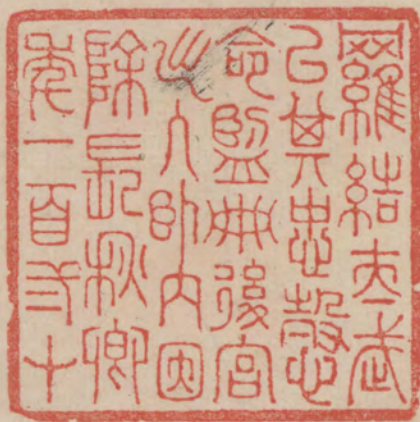 羅結太武
以其忠愨
命監典後宮
出入臥內因
除長秋卿
年一百弍十